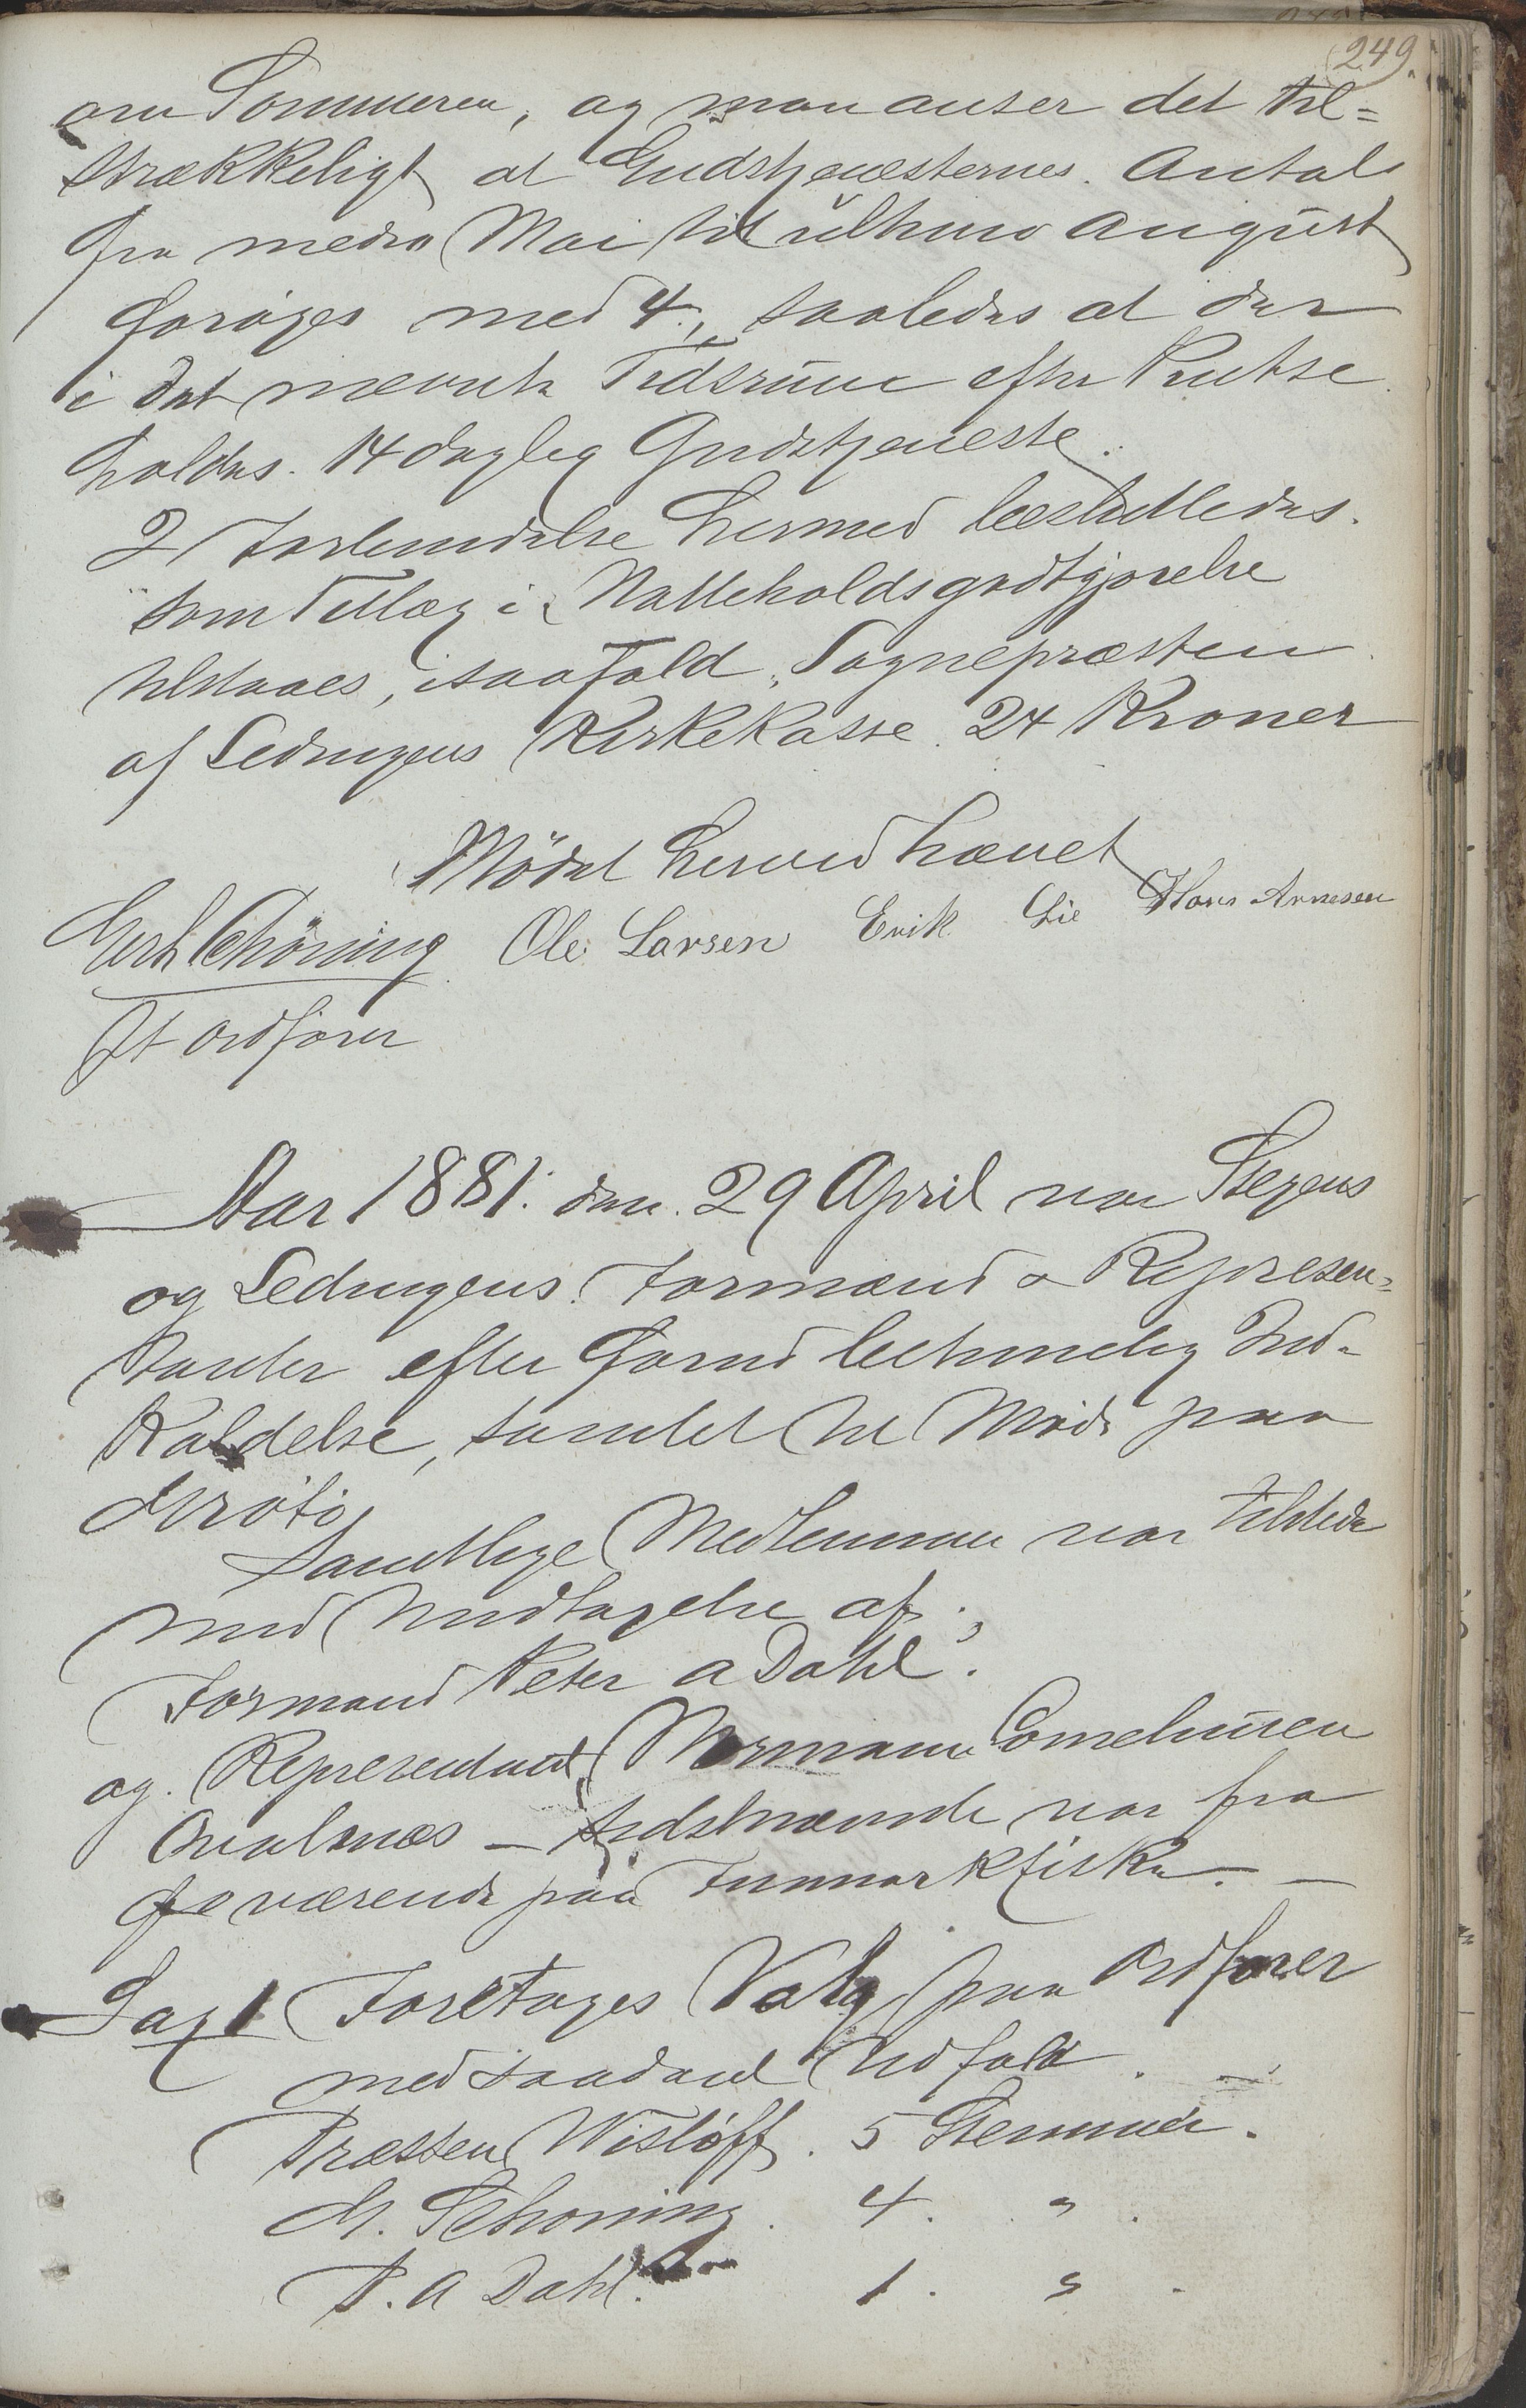 249.
om Sommeren, og man anser det til=
strækkeligt at Gudstjenesternes Antal
fra medio Mai til ultimo August
forøges med 4, saaledes at der
i det nævnte Tidsrum efter Pintse
holdes 14 daglig Gudstjeneste.
I Forbindelse hermed besluttedes
som Tillæg i Natteholdsgodtgjørelse
tilstaaes, isaafald, Sognepræsten
af Ledingens Kirkekasse 24 Kroner
Mødet herved hævet
Gerh Schöning Ole Larsen Erik Lie Hans Arnesen
ft Ordfører
Aar 1881. den 29 April var Stegens
og Ledingens Formænd & Represen=
tanter efter forud betimelig Ind-
kaldelse, samlet til Møde paa
Skrøtø
Samtlige Medlemmer var tilstede
med Undtagelse af:
Formand Peter A Dahl.
og Representant Normann Corneliusen
Qvalnæs – sidstnævnte var fra
værende paa Finmarkfiske. –
Sag 1 Foretages Valg paa Ordfører
med saadant Udfald.
Præsten Wisløff. 5 Stemmer.
M. Schøning. 4. "
P. A Dahl. 1. "